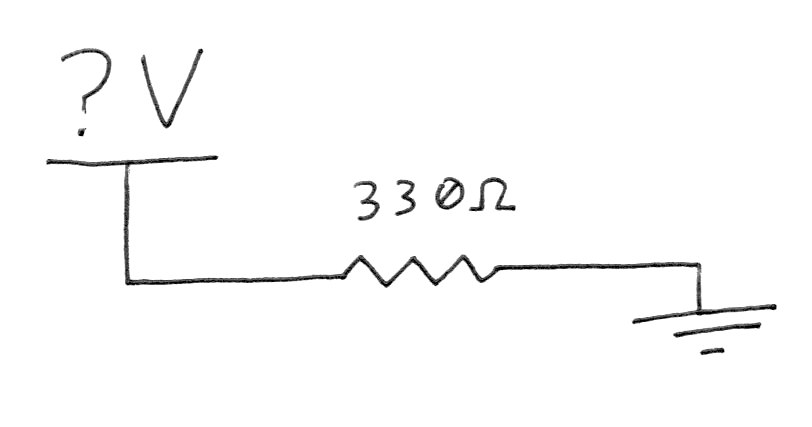 ? V
330Ω